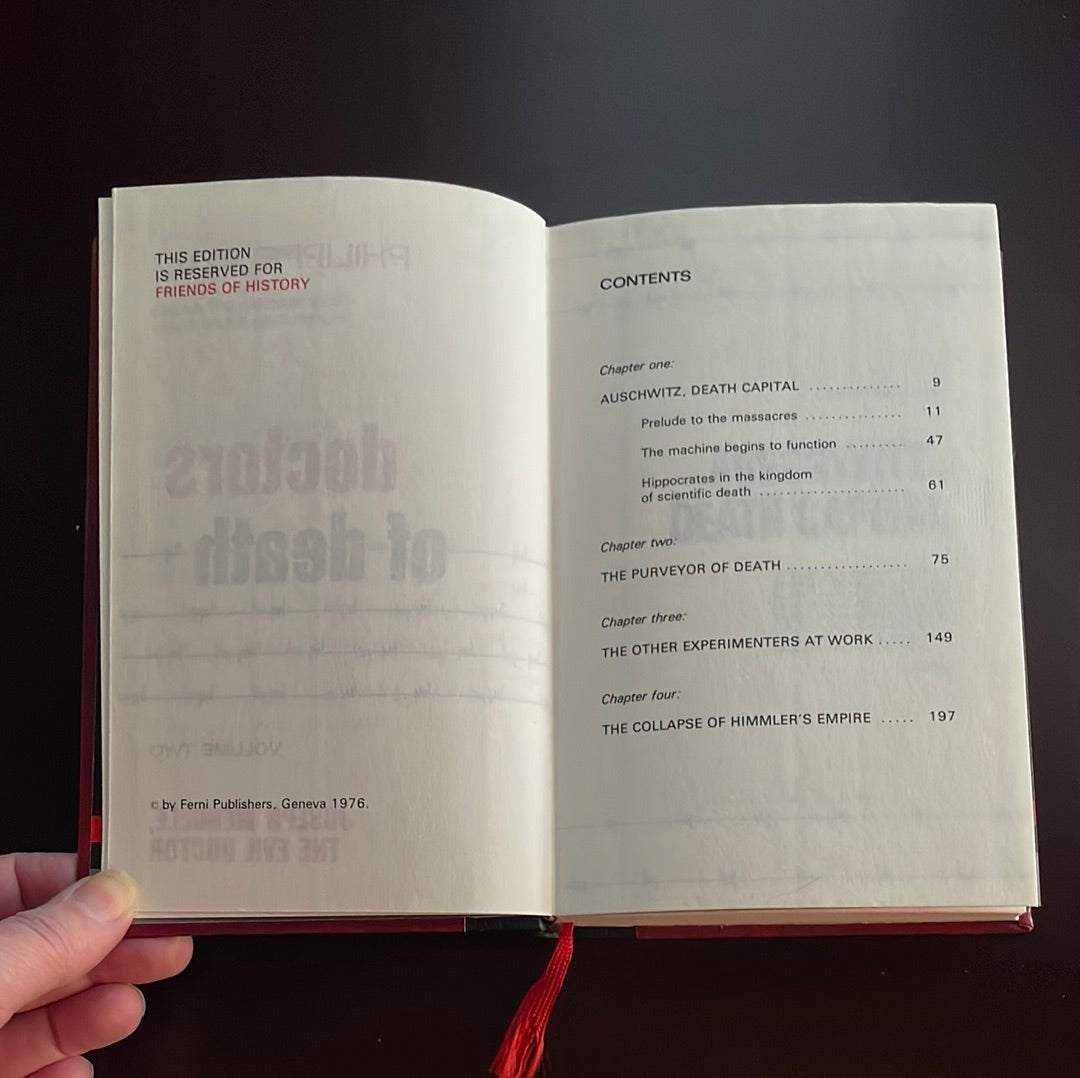 THIS EDITION
IS RESERVED FOR
FRIENDS OF HISTORY
doctors
of death
VOLUME TWO
© by Ferni Publishers, Geneva 1976.
JOSEPH MENGELE,
THE EVIL DOCTOR
CONTENTS
Chapter one:
AUSCHWITZ, DEATH CAPITAL .............. 9
Prelude to the massacres ............... 11
The machine begins to function ......... 47
Hippocrates in the kingdom
of scientific death ....................... 61
Chapter two:
THE PURVEYOR OF DEATH .................. 75
Chapter three:
THE OTHER EXPERIMENTERS AT WORK ..... 149
Chapter four:
THE COLLAPSE OF HIMMLER'S EMPIRE ..... 197